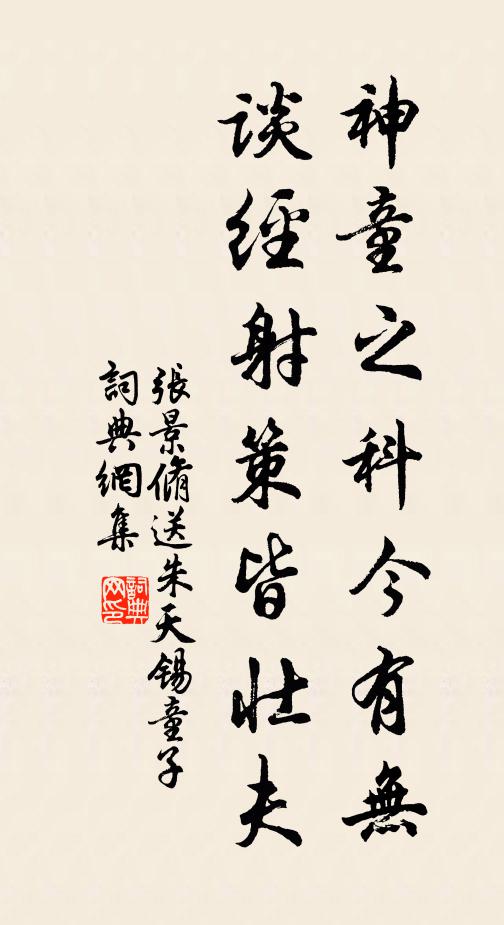 神童之科今有無
談經射策皆壯夫
張景脩送朱天錫童子
詞典網集
詞典網印